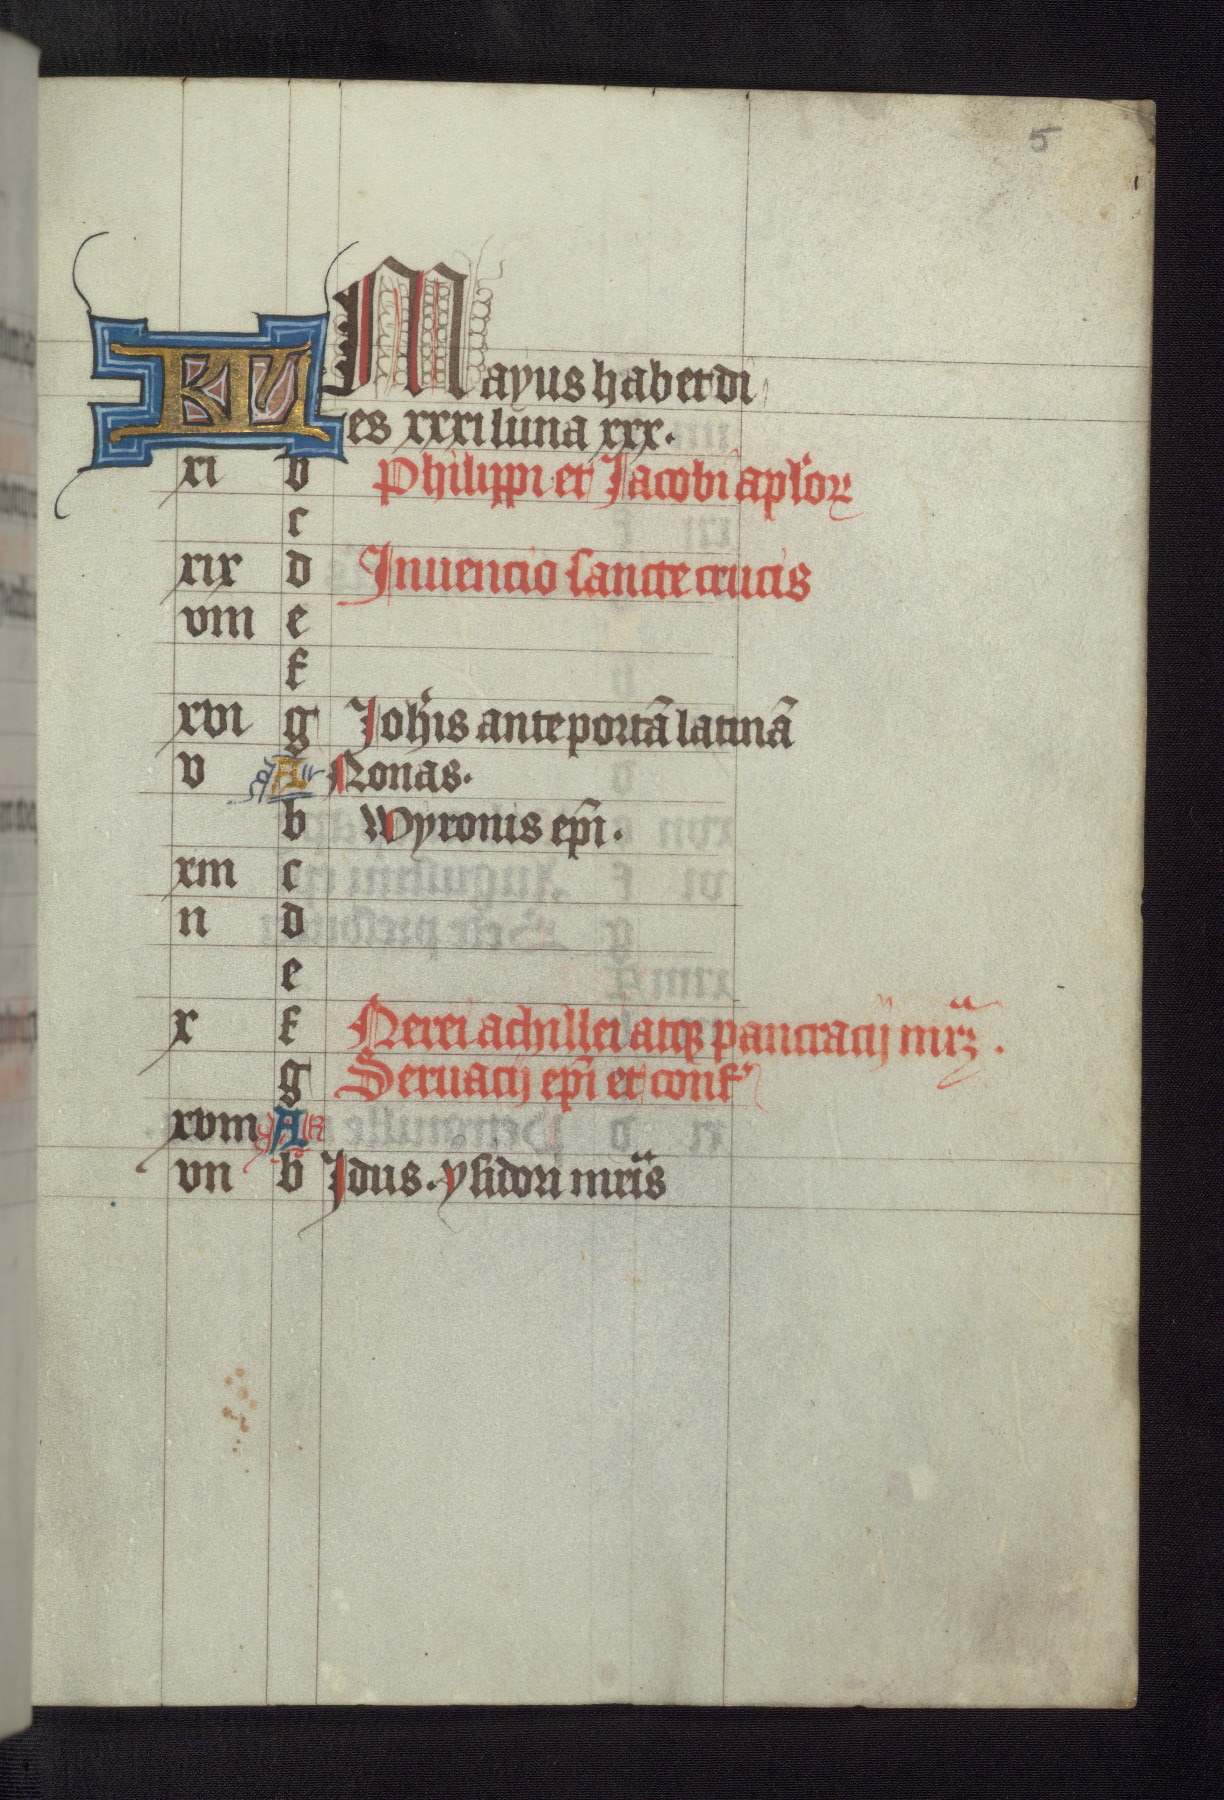 5
KL Mayus habet di
es xxxi luna xxx.
xi b Philippi et Jacobi aplor
c
xix d Inuencio sancte crucis
viii e
f
xvi g Johis ante portā latinā
v A Nonas.
b Wyronis epi.
xiii c
ii d
e
x f Nerei achillei atq pancracij mrz.
g Seruacij epi et conf
xviii A
vii b Idus. ysidori mris